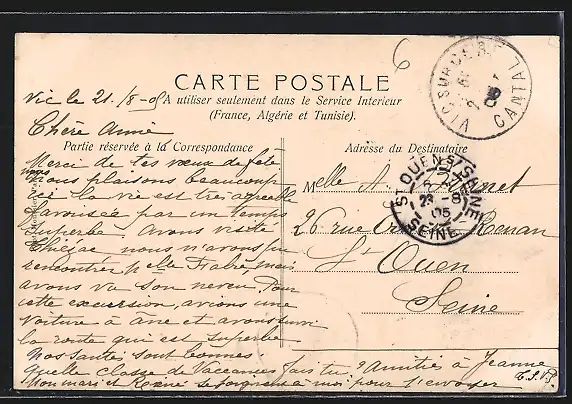 CARTE POSTALE
A utiliser seulement dans le Service Interieur
(France, Algérie et Tunisie).
Partie réservée à la Correspondance
Adresse du Destinataire
6
VIC SUR CERE
CANTAL
ST OUEN S/ SEINE
23 -8
05
SEINE
Vic le 21/8-05
Chère Amie
Merci de tes vœux de fête
nous nous plaisons beaucoup
ici la vie est très agréable
favorisée par un temps
superbe. Avons visité
nous n'avons pu
rencontrer Melle Fabre, mais
avons vu son neveu. Pour
cette excursion, avions une
voiture à âne et avons suivi
la route qui est superbe
Nos santés sont bonnes
Quelle classe de Vacances fais tu? Amitiés à Jeanne
Mon mari et se joignent à moi pour t'envoyer
Melle A.
26 rue Renan
St Ouen
Seine